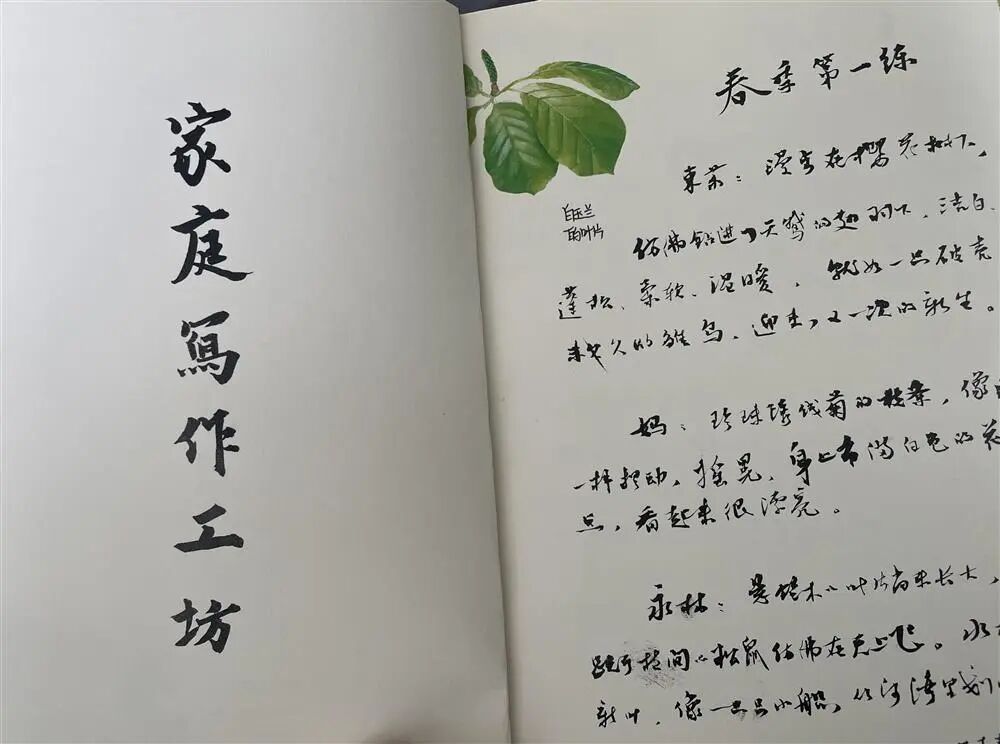 家庭寫作工坊
春季第一练
白玉兰
的叶片
东苏：漫步在樱花树下，
仿佛钻进了天鹅的翅羽下，洁白、
蓬松、柔软、温暖，就如一只破壳
未久的雏鸟，迎来了又一次的新生。
妈：珍珠绣线菊的枝条，像
一样摆动，摇晃，身上布满白色的花
点，看起来很漂亮。
永林：叶片尚未长大，
跑于枝间松鼠仿佛在光上飞。水
新叶，像一只只小船，从河湾里划